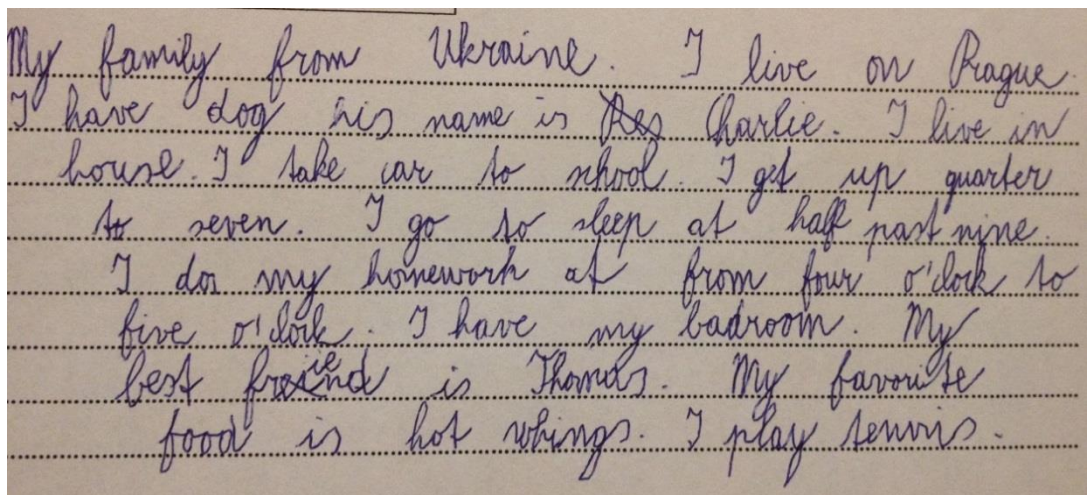 My family from Ukraine. I live on Prague.
I have dog his name is Res Charlie. I live in
house. I take car to school. I get up quarter
to seven. I go to sleep at half past nine.
I do my homework at from four o'clock to
five o'clock. I have my badroom. My
best friend is Thomas. My favorite
food is hot whings. I play tennis.